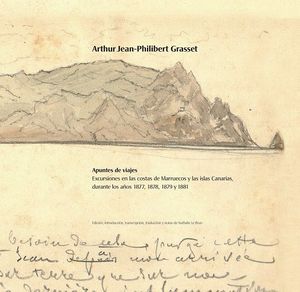 Arthur Jean-Philibert Grasset
Apuntes de viajes
Excursiones en las costas de Marruecos y las islas Canarias,
durante los años 1877, 1878, 1879 y 1881
Edición, introducción, transcripción, traducción y notas de Nathalie Le Brun
besoin de cela, jusqu'à cette
mon arrivée
par terre que sur mon